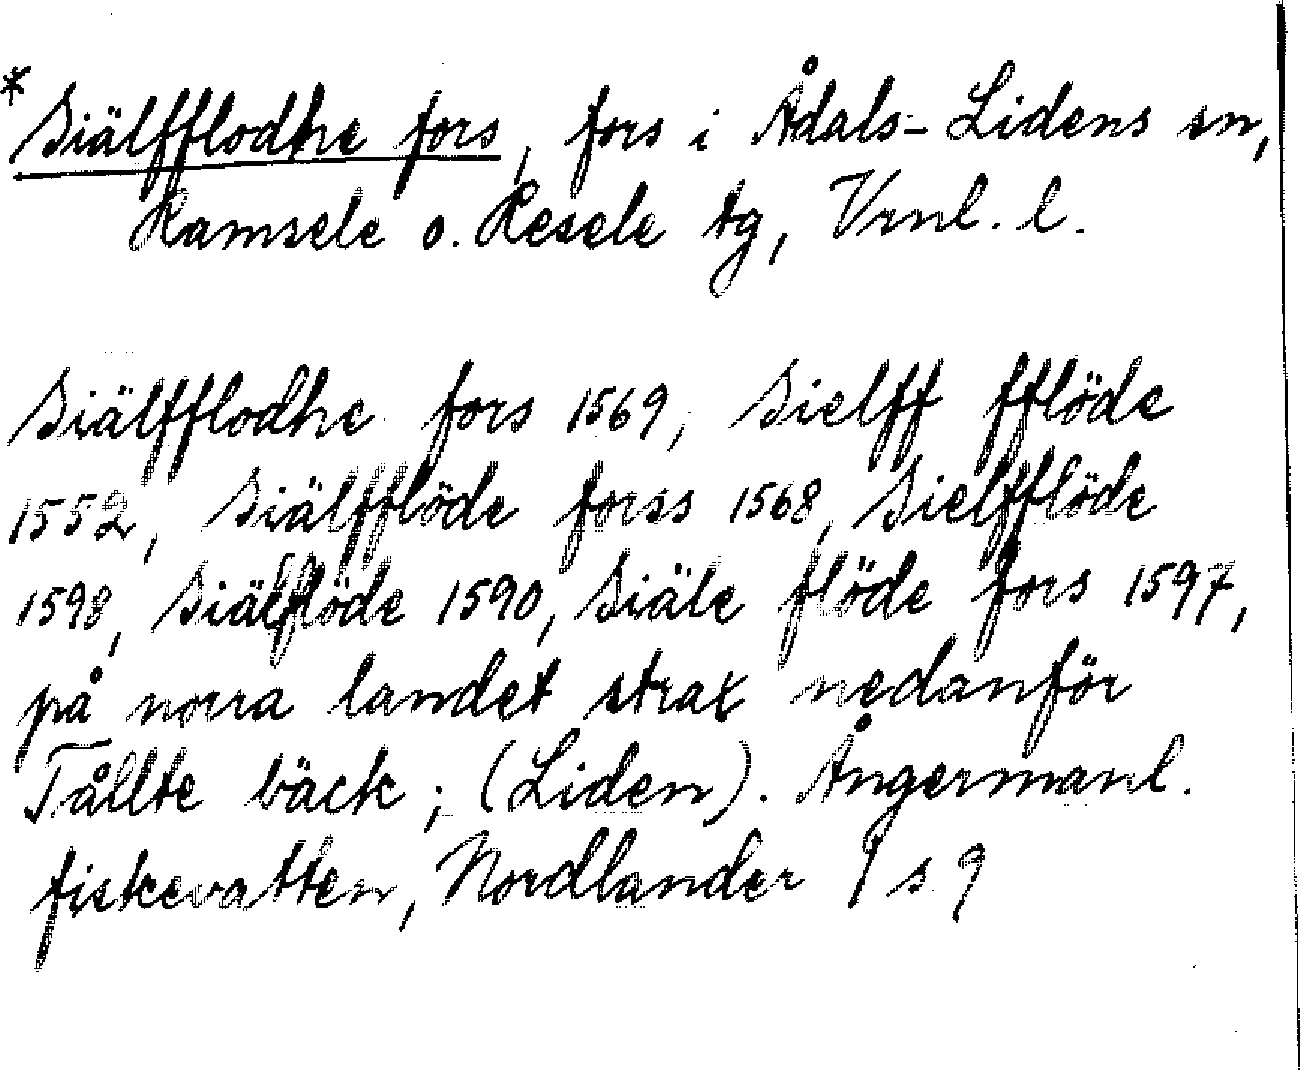 *Siälfflodhe fors, fors i Ådals-Lidens sn,
Ramsele o. Resele tg, Vrnl. l.
Siälfflodhe fors 1569, Sielff fflöde
1552, Siälfflöde forss 1568, Sielfflöde
1598, Siälflöde 1590, Siäle flöde fors 1597,
på norra landet strax nedanför
Tållte bäck; (Liden). Ångermanl.
fiskevatten, Nordlander I s 9